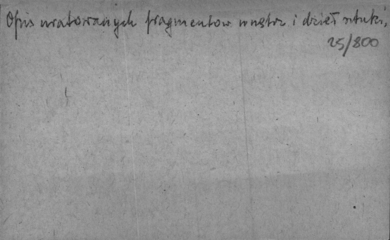 Opis uratowanych fragmentów wnętrz i dzieł sztuki,
25/800